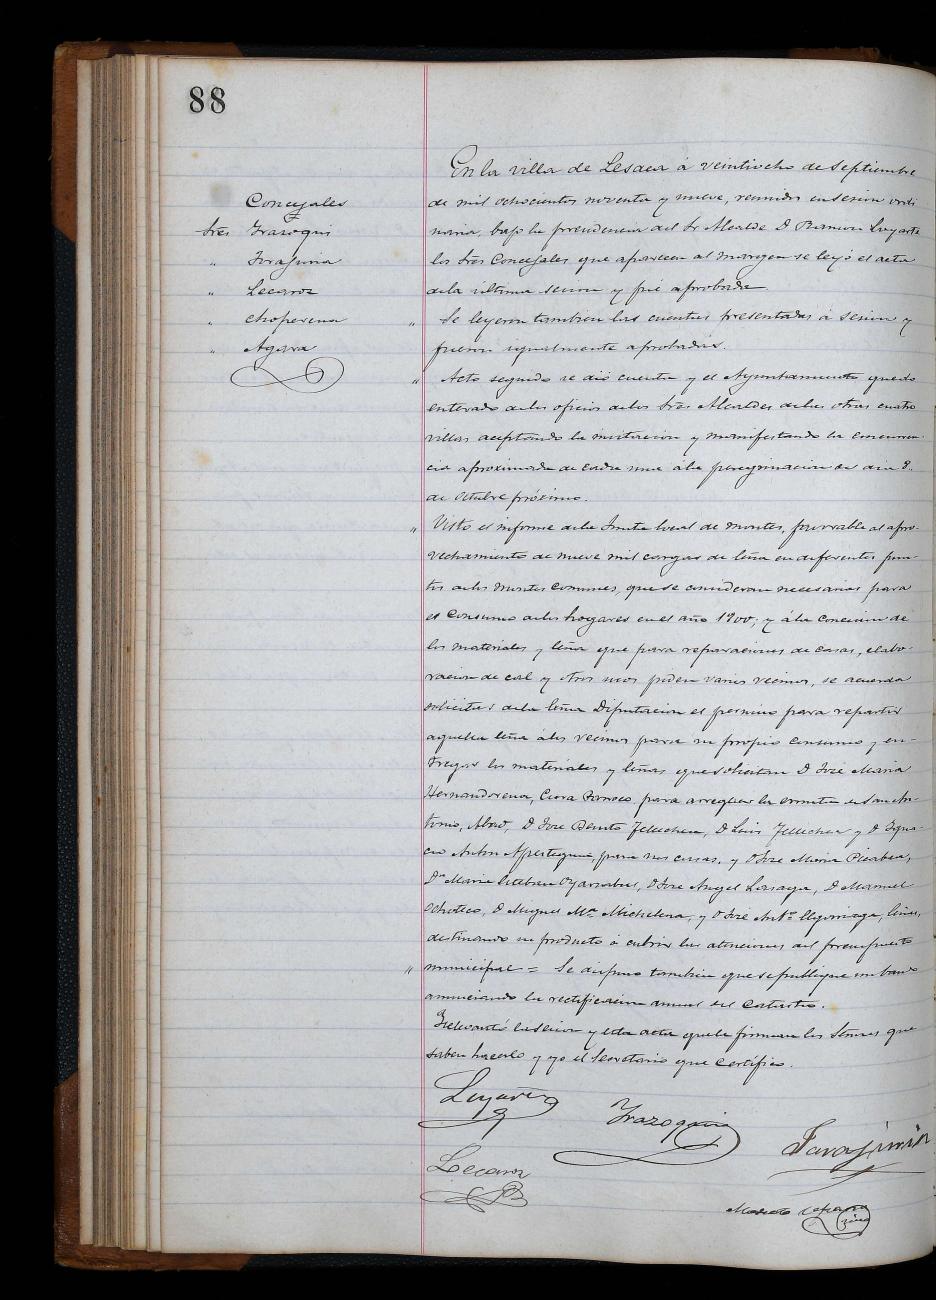 88
Concejales
Sres Irazoqui
" Tarajuria
" Lecaroz
" Choperena
" Agara
En la villa de Lesaca á veintiocho de Septiembre
de mil ochocientos noventa y nueve, reunidos en sesion ordi
naria, bajo la presidencia del Sr Alcalde D Ramon Loyarte
los Sres Concejales que aparecen al margen se leyó el acta
de la ultima sesion y fué aprobada
" Se leyeron tambien las cuentas presentadas á sesion y
fueron igualmente aprobadas.
" Acto seguido se dió cuenta y el Ayuntamiento quedó
enterado de los oficios de los Sres Alcaldes de las otras cuatro
villas aceptando la invitacion y manifestando la concurren-
cia aproximada de cada una á la peregrinacion del dia 8
de Octubre próximo.
" Visto el informe de la Junta local de montes, favorable al apro-
vechamiento de nueve mil cargas de leña en diferentes pun-
tos de los montes comunes, que se consideran necesarias para
el consumo de los hogares en el año 1900, y á la concesion de
los materiales y leña que para reparaciones de casas, elabo-
racion de cal y otros usos piden varios vecinos, se acuerda
solicitar de la Diputacion el permiso para repartir
aquella leña á los vecinos para su propio consumo y en-
tregar los materiales y leñas que solicitan D José Maria
Hernandorena, Cura Parroco, para arreglar la ermita de San An-
tonio, D José Benito Tellechea, D Luis Tellechea y D Igna-
cio Anton Apesteguia, para sus casas, y D José Maria Picabea,
Dª Maria Esteban Oyarzabal, D José Angel Lasaga, D Manuel
Ochoteco, D Miguel Mª Michelena, y D José Antº leñas,
destinando su producto á cubrir las atenciones del presupuesto
" municipal = Se dispuso tambien que se publique un bando
anunciando la rectificacion anual del Catastro.
Y se levantó la sesion y esta acta que la firman los Señores que
saben hacerlo y yo el Secretario que certifico.
Loyarte
Irazoqui
Tarajuria
Lecaroz